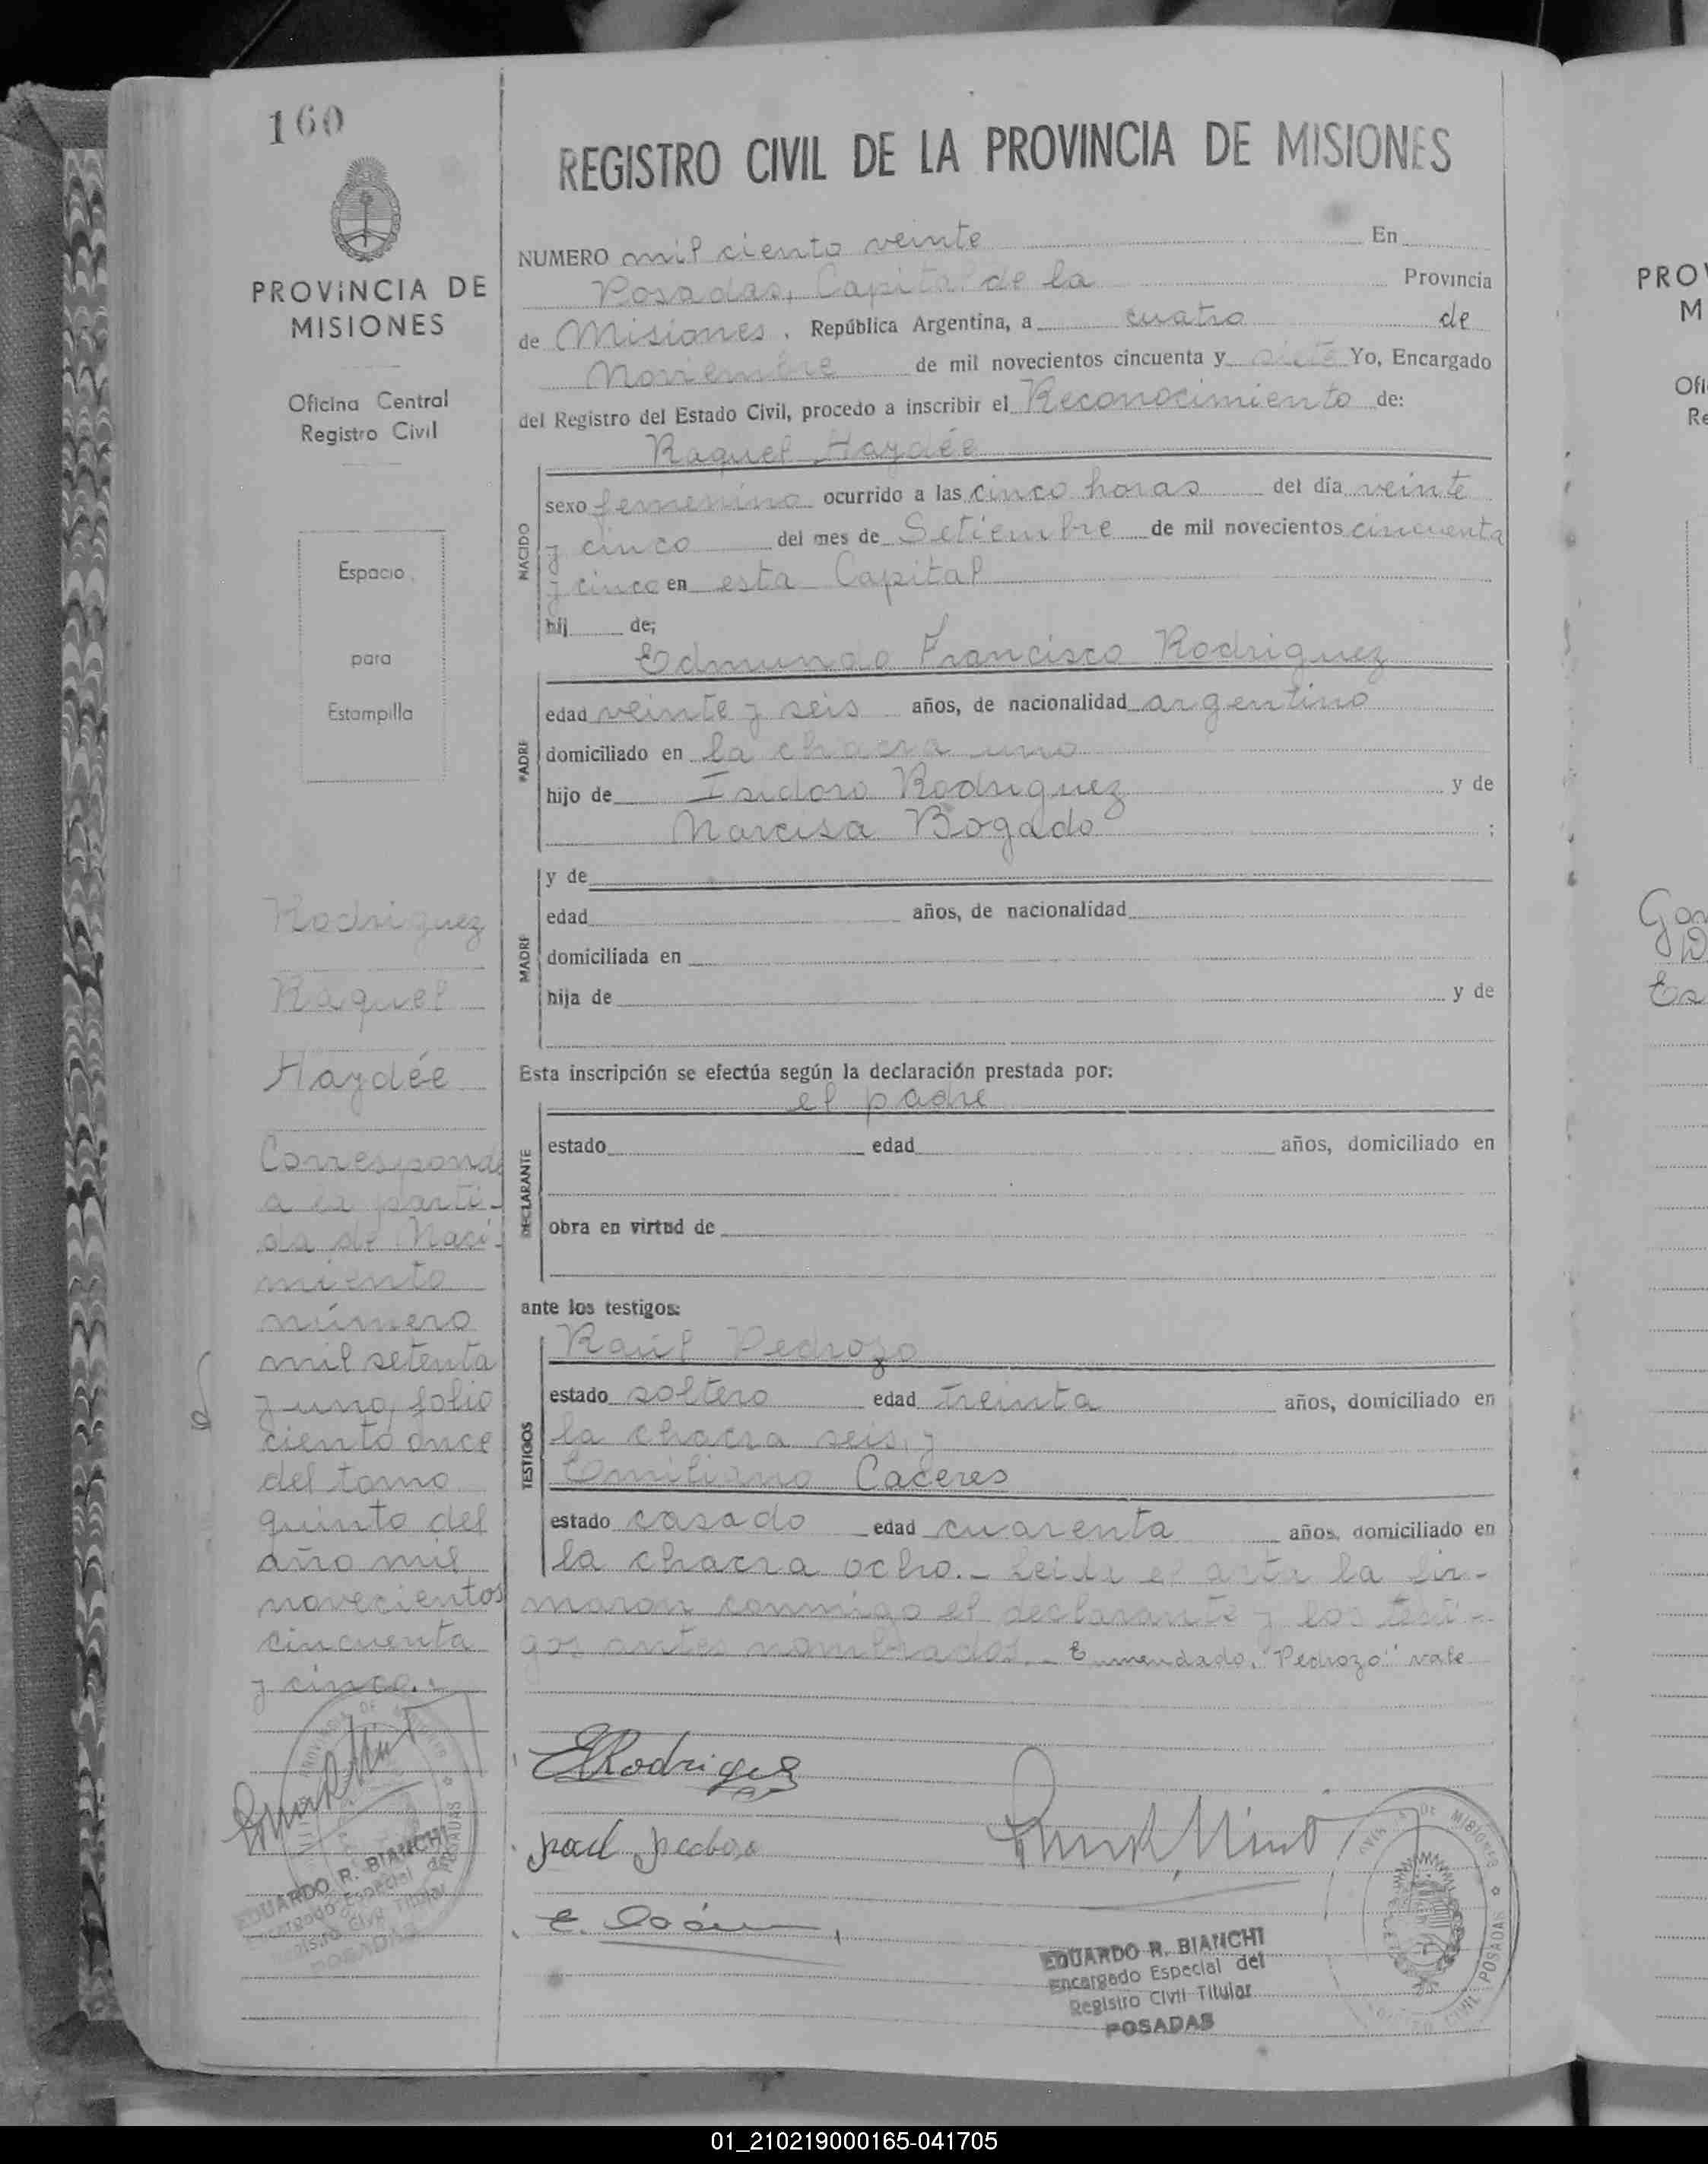 160
PROVINCIA DE
MISIONES
Oficina Central
Registro Civil
Espacio
para
Estampilla
Rodriguez
Raquel
Haydée
Corresponde
a la parti-
da de Naci-
miento
número
mil setenta
y uno, folio
ciento once
del tomo
quinto del
año mil
novecientos
cincuenta
y cinco.-
EDUARDO R. BIANCHI
Encargado Especial del
Registro Civil Titular
POSADAS
REGISTRO CIVIL DE LA PROVINCIA DE MISIONES
NUMERO mil ciento veinte En
Posadas, Capital de la Provincia
de Misiones. República Argentina, a cuatro de
Noviembre de mil novecientos cincuenta y siete Yo, Encargado
del Registro del Estado Civil, procedo a inscribir el Reconocimiento de:
Raquel Haydée
NACIDO
sexo femenino ocurrido a las cinco horas del día veinte
y cinco del mes de Setiembre de mil novecientos cincuenta
y cinco en esta Capital
hij de;
Edmundo Francisco Rodriguez
PADRE
edad veinte y seis años, de nacionalidad argentino
domiciliado en la chacra uno
hijo de Isidoro Rodriguez y de
Narcisa Bogado ;
MADRE
y de
edad años, de nacionalidad
domiciliada en
hija de y de
Esta inscripción se efectúa según la declaración prestada por:
el padre
DECLARANTE
estado edad años, domiciliado en
obra en virtud de
ante los testigos:
Raúl Pedrozo
TESTIGOS
estado soltero edad treinta años, domiciliado en
la chacra seis, y
Emiliano Caceres
estado casado edad cuarenta años, domiciliado en
la chacra ocho.- Leida el acta la fir-
maron conmigo el declarante y los testi-
gos antes nombrados.- Enmendado, "Pedrozo" vale
ERodriguez
E.
EDUARDO R. BIANCHI
Encargado Especial del
Registro Civil Titular
POSADAS
DE MISIONES
CIVIL POSADAS
PRO
M
Ofi
Re
Gon
D
Es
01_210219000165-041705